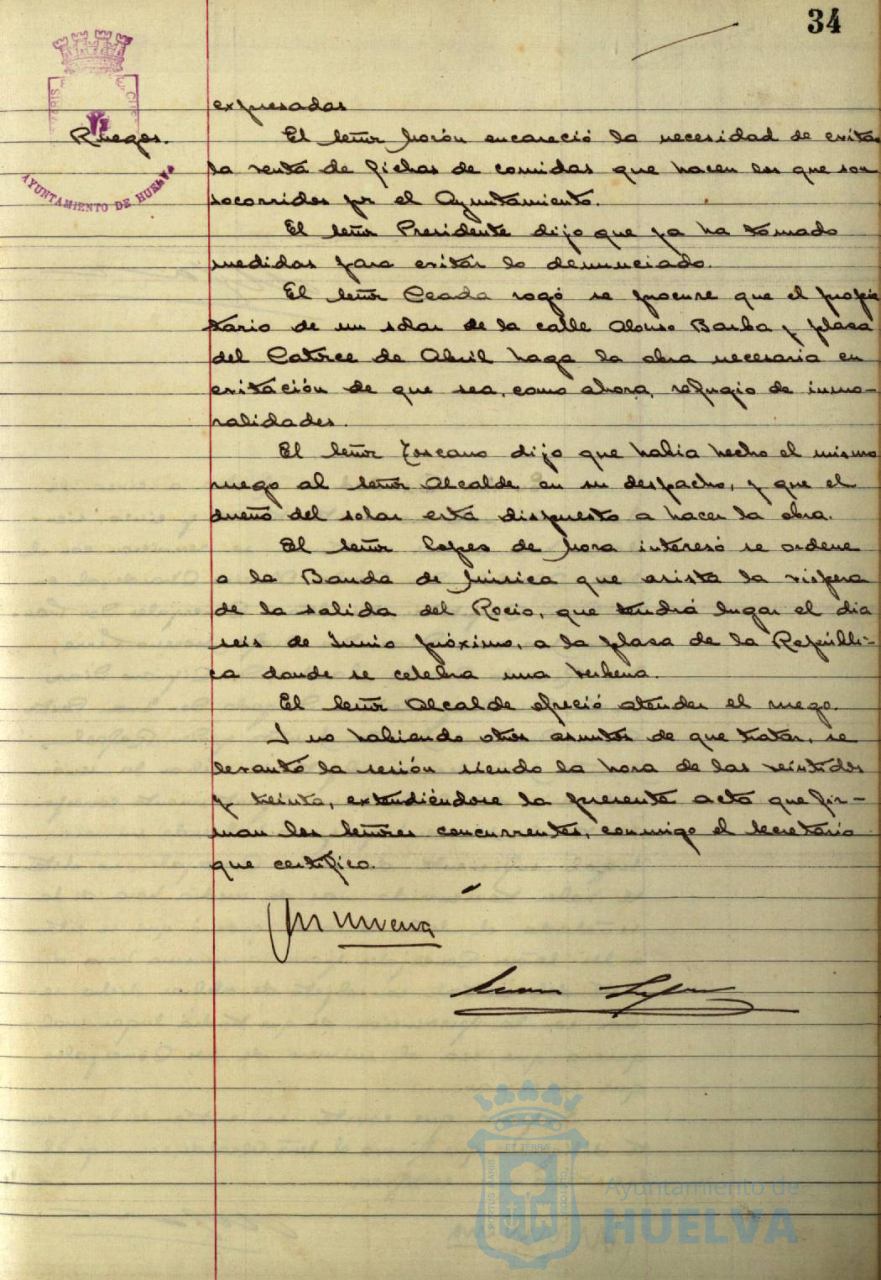 34
expresadas
Ruegos.
El señor Morón encareció la necesidad de evitar
la venta de fichas de comidas que hacen los que son
socorridos por el Ayuntamiento.
El señor Presidente dijo que ya ha tomado
medidas para evitar lo denunciado.
El señor Ceada rogó se procure que el propie
tario de un solar de la calle Alonso Barba y plaza
del Catorce de Abril haga la obra necesaria en
evitación de que sea, como ahora, refugio de inmo-
ralidades.
El señor Toscano dijo que había hecho el mismo
ruego al señor Alcalde en su despacho, y que el
dueño del solar está dispuesto a hacer la obra.
El señor López de Mora interesó se ordene
a la Banda de Música que asista la víspera
de la salida del Rocio, que tendrá lugar el dia
seis de Junio próximo, a la plaza de la Repúbli-
ca donde se celebra una verbena.
El señor Alcalde ofreció atender el ruego.
Y no habiendo otros asuntos de que tratar, se
levantó la sesión siendo la hora de las veintidos
y treinta, extendiéndose la presente acta que fir-
man los señores concurrentes, conmigo el Secretario
que certifico.
AYUNTAMIENTO DE HUELVA
Ayuntamiento de
HUELVA